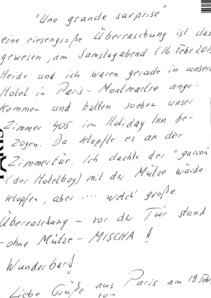 "Une grande surprise"
eine riesengroße Überraschung ist das
gewesen, am Samstagabend (16. Febr. 201
Heide und ich waren gerade in unser
Hotel in Paris-Montmartre ange-
kommen und hatten soeben unser
Zimmer 405 im Holiday Inn be-
zogen. Da klopfte es an der
Zimmertür. Ich dachte der "garcon"
(der Hotelboy) mit der Mütze würde
klopfen, aber .... welch' große
Überraschung - vor der Tür stand
- ohne Mütze - MISCHA !
Wunderbar!
Liebe Grüße aus Paris am 19. Febr